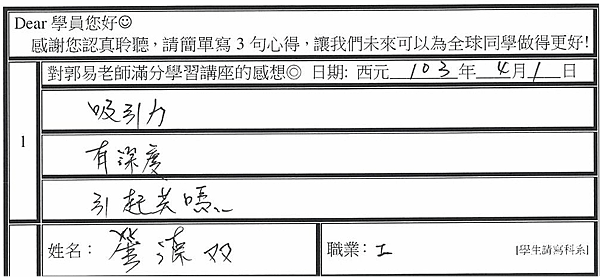 Dear 學員您好☺
感謝您認真聆聽，請簡單寫 3 句心得，讓我們未來可以為全球同學做得更好!
對郭易老師滿分學習講座的感想◎ 日期: 西元 103 年 4 月 1 日
1
吸引力
有深度
引起共鳴
姓名：
職業： 工 [學生請寫科系]